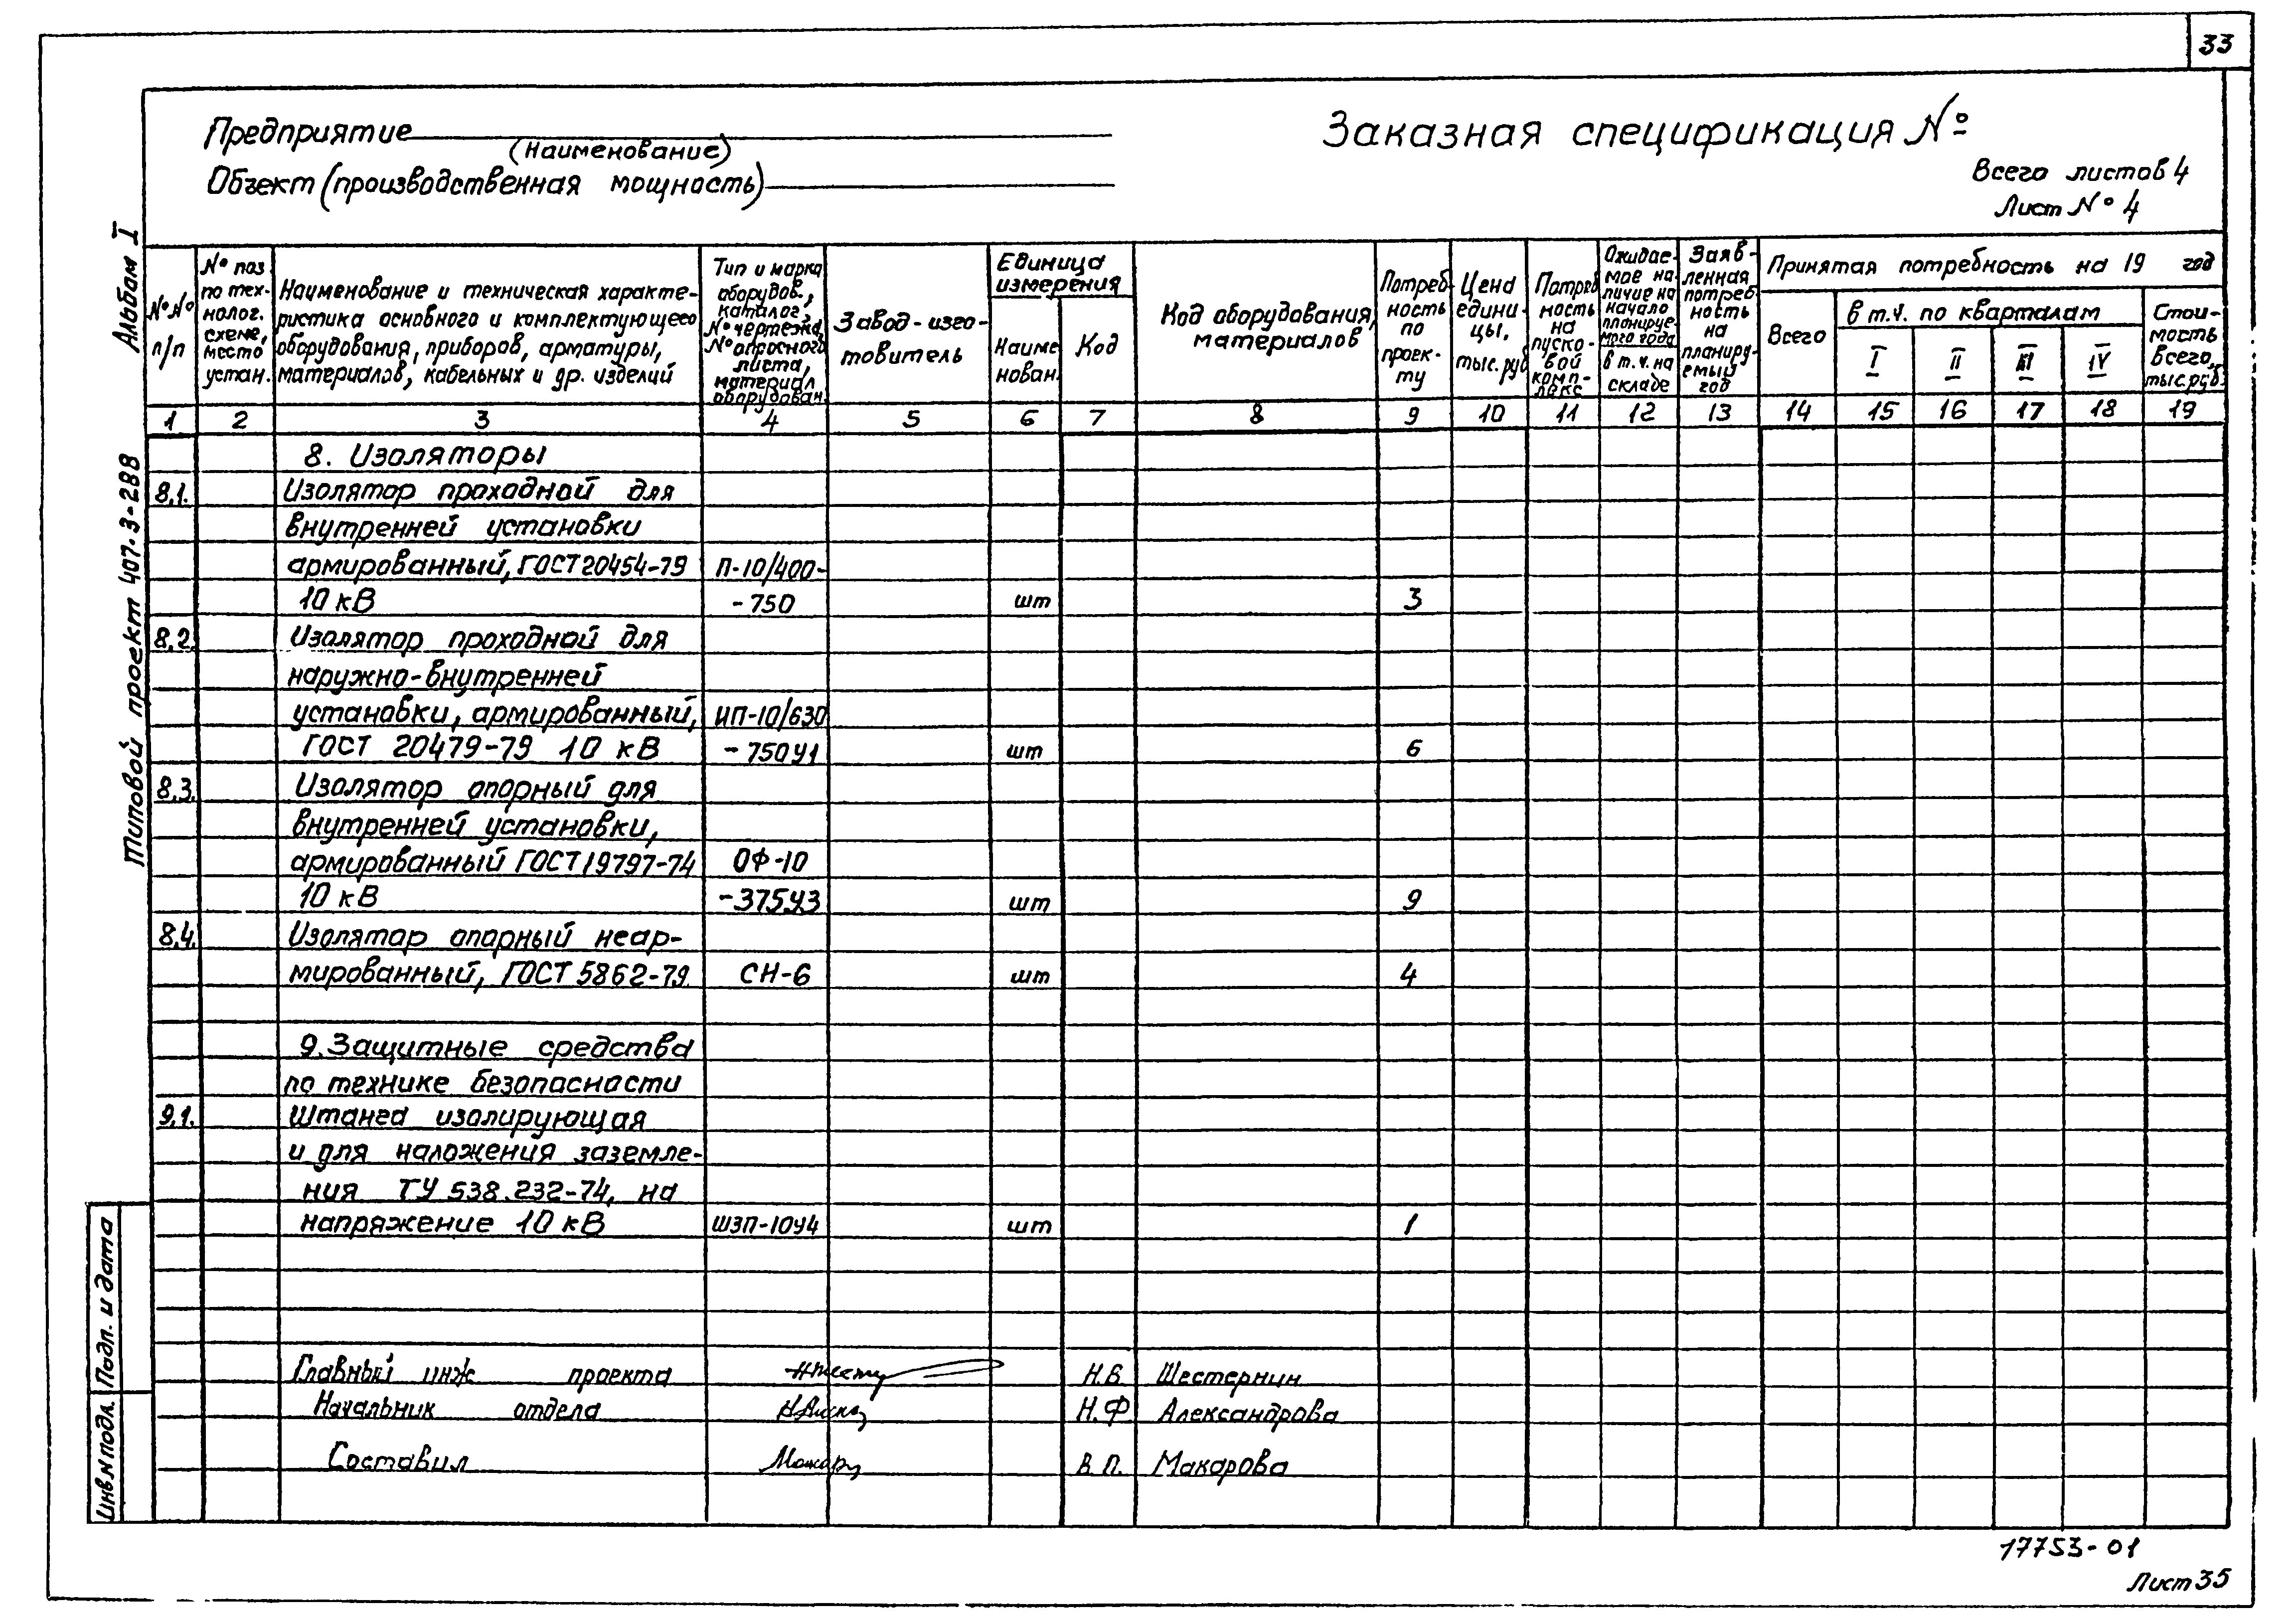 33
Предприятие
(Наименование)
Объект (производственная мощность)
Заказная спецификация №
Всего листов 4
Лист № 4
Альбом I
Типовой проект 407-3-288
№№ п/п
№ поз.
по тех-
нолог.
схеме,
место
устан.
Наименование и техническая характе-
ристика основного и комплектующего
оборудования, приборов, арматуры,
материалов, кабельных и др. изделий
Тип и марка
оборудов.,
каталог,
№ чертежа,
№ опросного
листа,
материал
оборудован.
Завод-изго-
товитель
Единица
измерения
Наиме
нован.
Код
Код оборудования,
материалов
Потреб
ность
по
проек-
ту
Цена
едини-
цы,
тыс.руб
Потреб
ность
на
пуско-
вой
комп-
лекс
Ожидае-
мое на-
личие на
начало
планируе-
мого года
в т.ч. на
складе
Заяв-
ленная
потреб-
ность
на
планиру-
емый
год
Принятая потребность на 19 год
Всего
в т.ч. по кварталам
I II III IV
Стои-
мость
всего,
тыс.руб.
1 2 3 4 5 6 7 8 9 10 11 12 13 14 15 16 17 18 19
8. Изоляторы
8.1. Изолятор проходной для
внутренней установки
армированный, ГОСТ 20454-79 П-10/400-
10 кВ -750 шт 3
8.2. Изолятор проходной для
наружно-внутренней
установки, армированный, ИП-10/630
ГОСТ 20479-79 10 кВ -750У1 шт 6
8.3. Изолятор опорный для
внутренней установки,
армированный ГОСТ 19797-74 ОФ-10
10 кВ -375У3 шт 9
8.4. Изолятор опорный неар-
мированный, ГОСТ 5862-79. СН-6 шт 4
9. Защитные средства
по технике безопасности
9.1. Штанга изолирующая
и для наложения заземле-
ния ТУ 538.232-74, на
напряжение 10 кВ ШЗП-10У4 шт 1
Главный инж проекта Н.В. Шестернин
Начальник отдела Н.Ф Александрова
Составил В.П. Макарова
Подп. и дата
Инв.№ подл.
17753-01
Лист 35